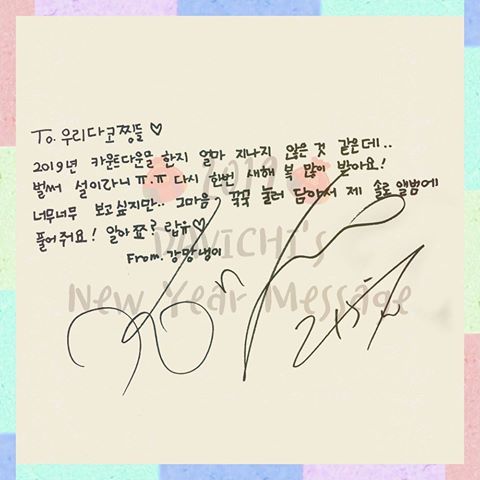 To. 우리다코찡들 ♡
2019년 카운트다운을 한지 얼마 지나지 않은 것 같은데..
벌써 설이라니 ㅠㅠ 다시 한번 새해 복 많이 받아요!
너무너무 보고싶지만.. 그마음, 꾹꾹 눌러 담아서 제 솔로앨범에
풀어줘요! 알아쬬? 랍유♡
From. 강망냉이
2019
DAVICHI's
New Year Message